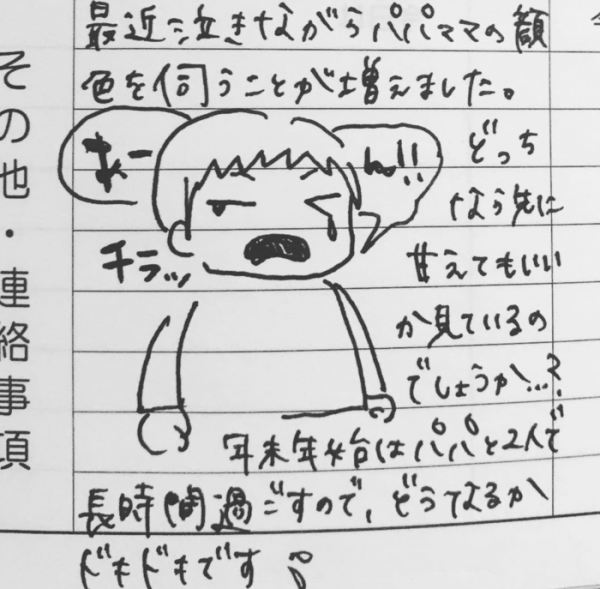 その他・連絡事項
最近泣きながらパパママの顔
色を伺うことが増えました。
まー
ん!!
チラッ
どっち
なら先に
甘えてもいい
か見ているの
でしょうか…?
年末年始はパパと2人で
長時間過ごすので、どうなるか
ドキドキです